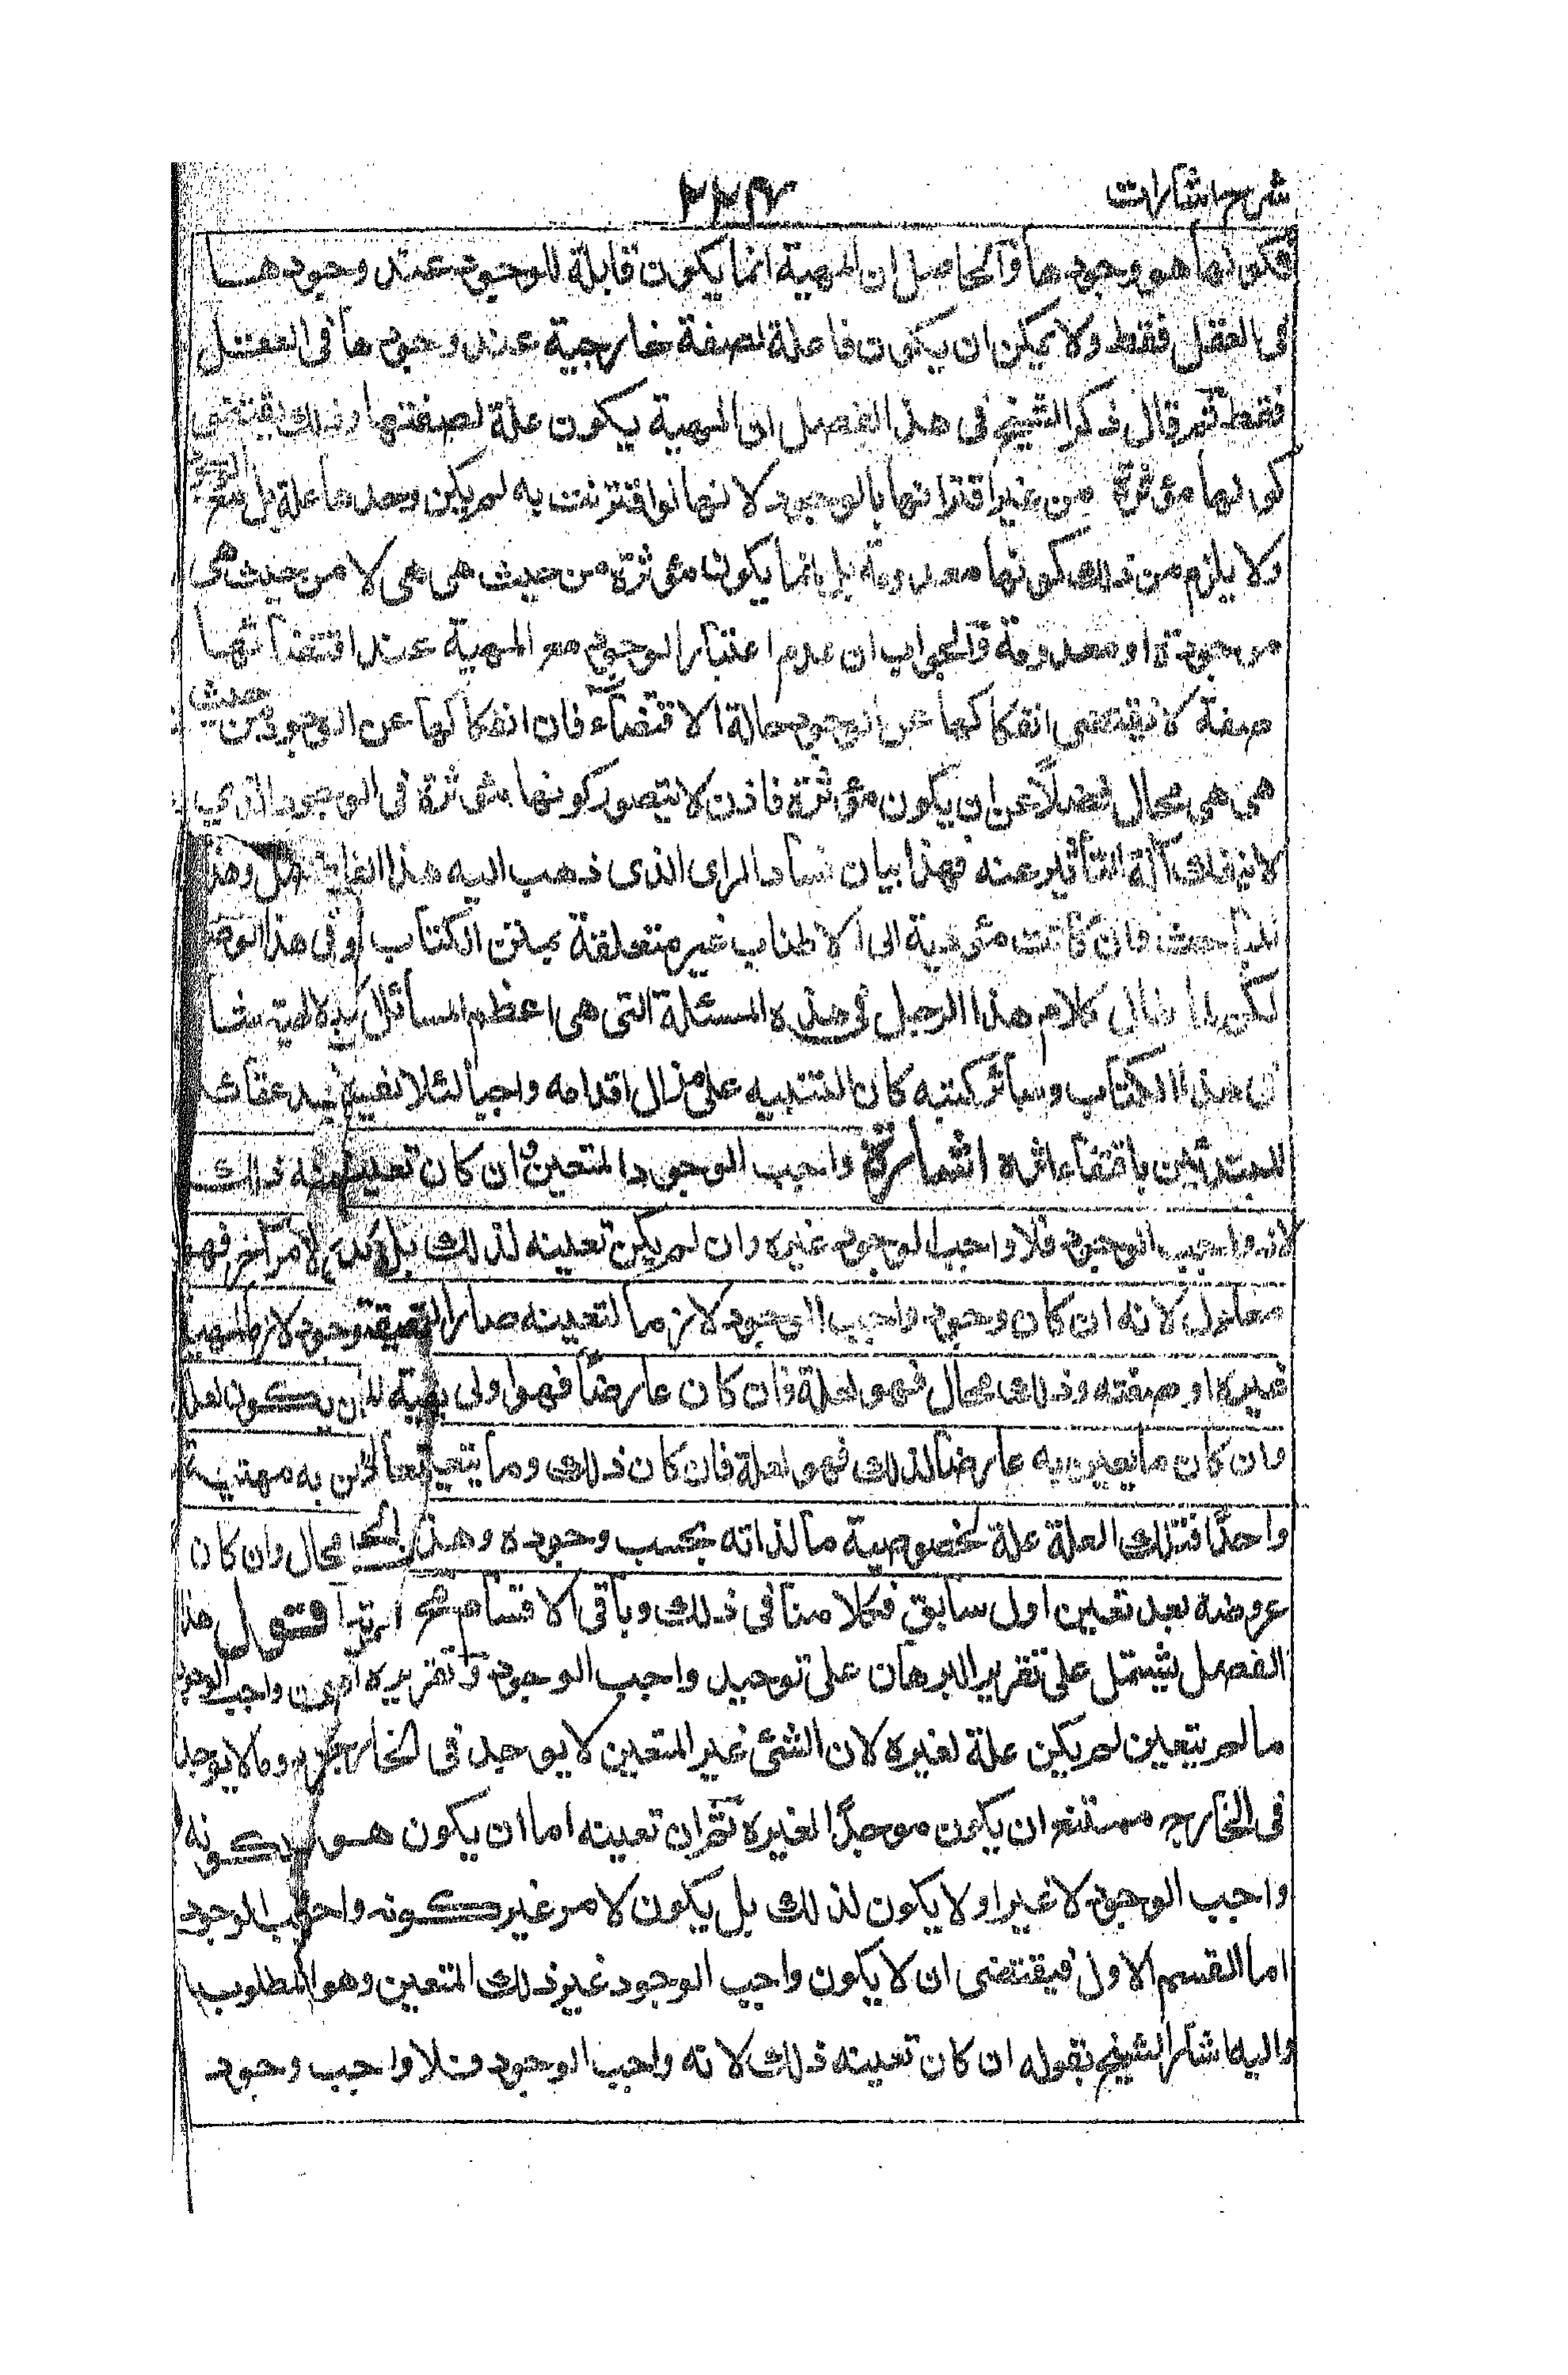 شرح اشارات
فكونها هو وجودها والحاصل ان المهية انما يكون قابلة للوجود عند وجودها
فى العقل فقط ولا يمكن ان يكون فاعلة لصفة خارجية عند وجودها فى العقل
فقط ثم قال ذكر الشيخ فى هذا الفصل ان المهية يكون علة لصفتها وذلك يقتضى
كونها مؤثرة من غير اقترانها بالوجود لانها لو اقترنت به لم يكن وحدها علة بل مع
ولا يلزم من ذلك كونها معدومة بل انما يكون مؤثرة من حيث هى هى لا من حيث هى
موجودة او معدومة والجواب ان عدم اعتبار الوجود مع المهية عند اقتضائها
صفة لا يقتضى انفكاكها عن الوجود حالة الاقتضاء فان انفكاكها عن الوجود من حيث
هى هى محال فضلا عن ان يكون مؤثرة فاذن لا يتصور كونها مؤثرة فى الوجود الذي
لا ينفك آلة التأثير عنه فهذا بيان فساد الراى الذى ذهب اليه هذا الفاضل وهذا
المباحث فان كانت مؤدية الى الاطناب غير متعلقة بمتن الكتاب فى هذا
لكن لما طال كلام هذا الرجل فى هذه المسئلة التى هى اعظم المسائل
فى هذا الكتاب وسائر كتبه كان التنبيه على مزال اقدامه واجبا لئلا
المبتدئين باقتفاء اثره اشارة واجب الوجود المتعين ان كان تعينه ذلك
لانه واجب الوجود فلا واجب الوجود غيره وان لم يكن تعينه لذلك بل لامر آخر فهو
معلول لانه ان كان وجود واجب الوجود لازما لتعينه صار
غيره او صفته وذلك محال فهو لعلة وان كان عارضا فهو اولى بان يكون لعلة
وان كان ما يعين به عارضا لذلك فهو لعلة فان كان ذلك وما يتعين به مهيته
واحدا فتلك العلة علة لخصوصية ما لذاته يجب وجوده وهذا محال وان كان
عروضه بعد تعين اول سابق فكلامنا فى ذلك وباقى الاقسام محال اقول هذا
الفصل يشتمل على تقرير البرهان على توحيد واجب الوجود وتقريره ان واجب الوجود
ما لم يتعين لم يكن علة لغيره لان الشئ غير المتعين لا يوجد فى الخارج وما لا يوجد
فى الخارج يمتنع ان يكون موجدا لغيره ثم ان تعينه اما ان يكون هو لكونه
واجب الوجود لا غير او لا يكون لذلك بل يكون لامر غير كونه واجب الوجود
اما القسم الاول فيقتضى ان لا يكون واجب الوجود غير ذلك المتعين وهو المطلوب
واليه اشار الشيخ بقوله ان كان تعينه ذلك لانه واجب الوجود فلا واجب وجود